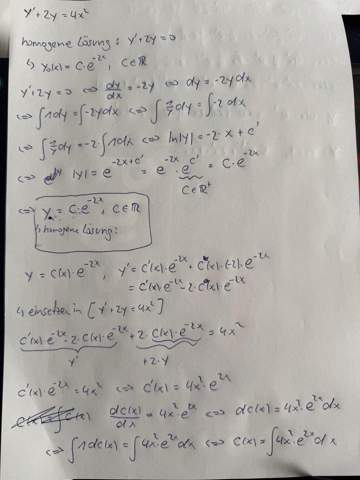 y'+2y = 4x²
homogene Lösung: y'+2y=0
↳ y₀(x) = C·e^{-2x}, C∈ℝ
y'+2y=0 ⇔ dy/dx = -2y ⇔ dy = -2y dx
⇔ ∫1dy = ∫-2y dx ⇔ ∫1/y dy = ∫-2 dx
⇔ ∫1/y dy = -2·∫1dx ⇔ ln|y| = -2·x + c'
⇔ |y| = e^{-2x+c'} = e^{-2x}·e^{c'} = C·e^{-2x}
C∈ℝ⁺
⇔ y₀ = C·e^{-2x}, C∈ℝ
↳ homogene Lösung:
y = C(x)·e^{-2x}, y' = C'(x)·e^{-2x} + C(x)·(-2)·e^{-2x}
= C'(x)·e^{-2x} - 2·C(x)·e^{-2x}
↳ einsetzen in [y'+2y = 4x²]
C'(x)·e^{-2x} - 2·C(x)·e^{-2x} + 2·C(x)·e^{-2x} = 4x²
y' +2·y
C'(x)·e^{-2x} = 4x² ⇔ C'(x) = 4x²·e^{2x}
dC(x)/dx = 4x²·e^{2x} ⇔ dC(x) = 4x²·e^{2x} dx
⇔ ∫1dC(x) = ∫4x²·e^{2x} dx ⇔ C(x) = ∫4x²·e^{2x} dx